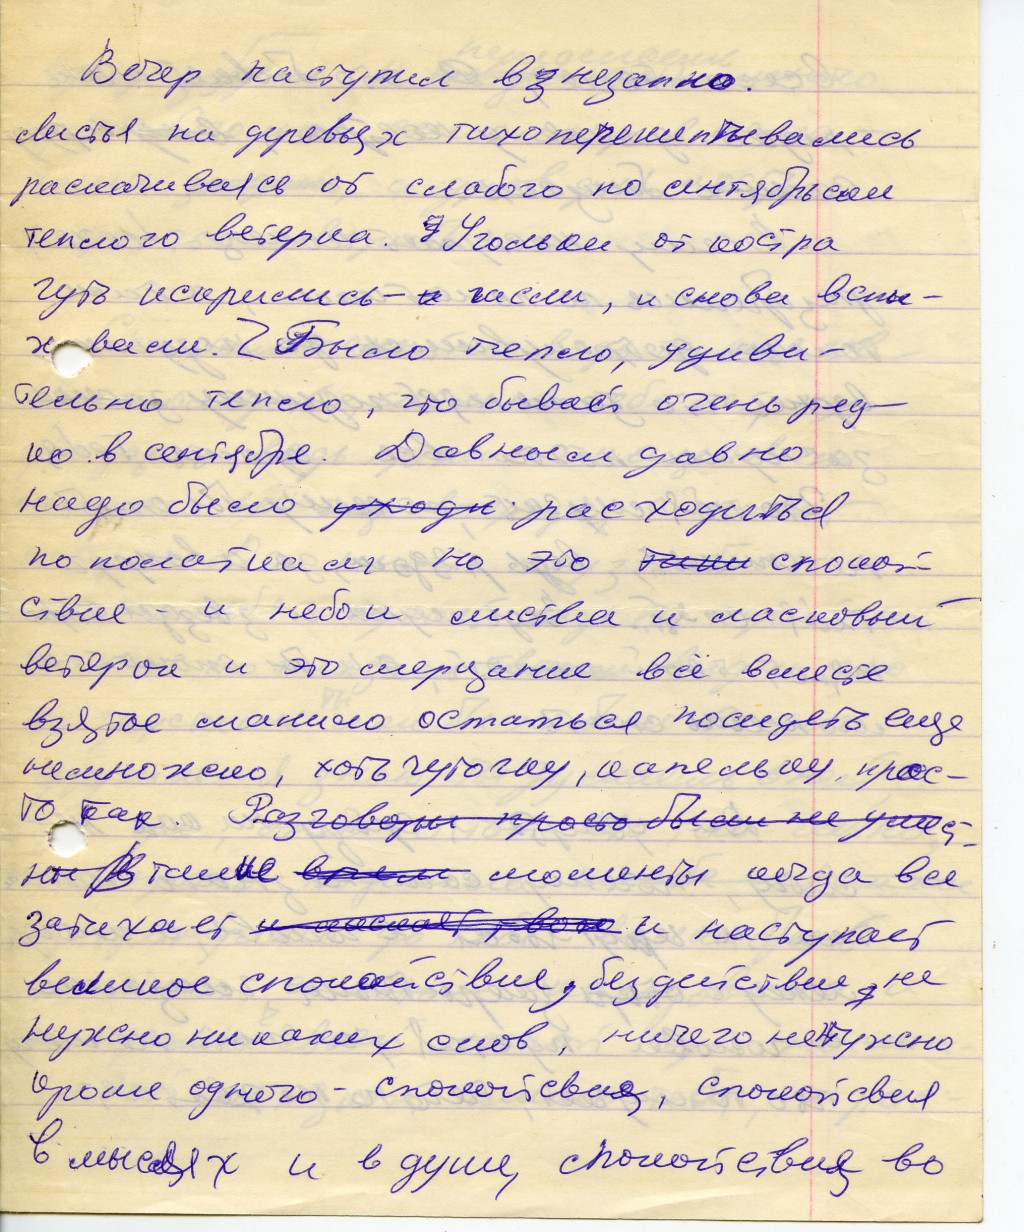 Вечер наступил внезапно.
листья на деревьях тихо перешептывались
раскачиваясь от слабого по сентябрьски
теплого ветерка. Угольки от костра
чуть искрились - гасли, и снова вспы-
хивали. Было тепло, удиви-
тельно тепло, что бывает очень ред-
ко в сентябре. Давным давно
надо было уходи расходиться
по палаткам но это спокой-
ствие - и небо и листва и ласковый
ветерок и это мерцание всё вместе
взятое манило остаться посидеть еще
немножко, хоть чуточку, капельку, прос-
то так. Разговоры просто были не умест-
ны В такие время моменты когда все
затихает и наступает
великое спокойствие, бездействие, не
нужно никаких слов, ничего не нужно
кроме одного - спокойствия, спокойствия
в мыслях и в душе, спокойствия во